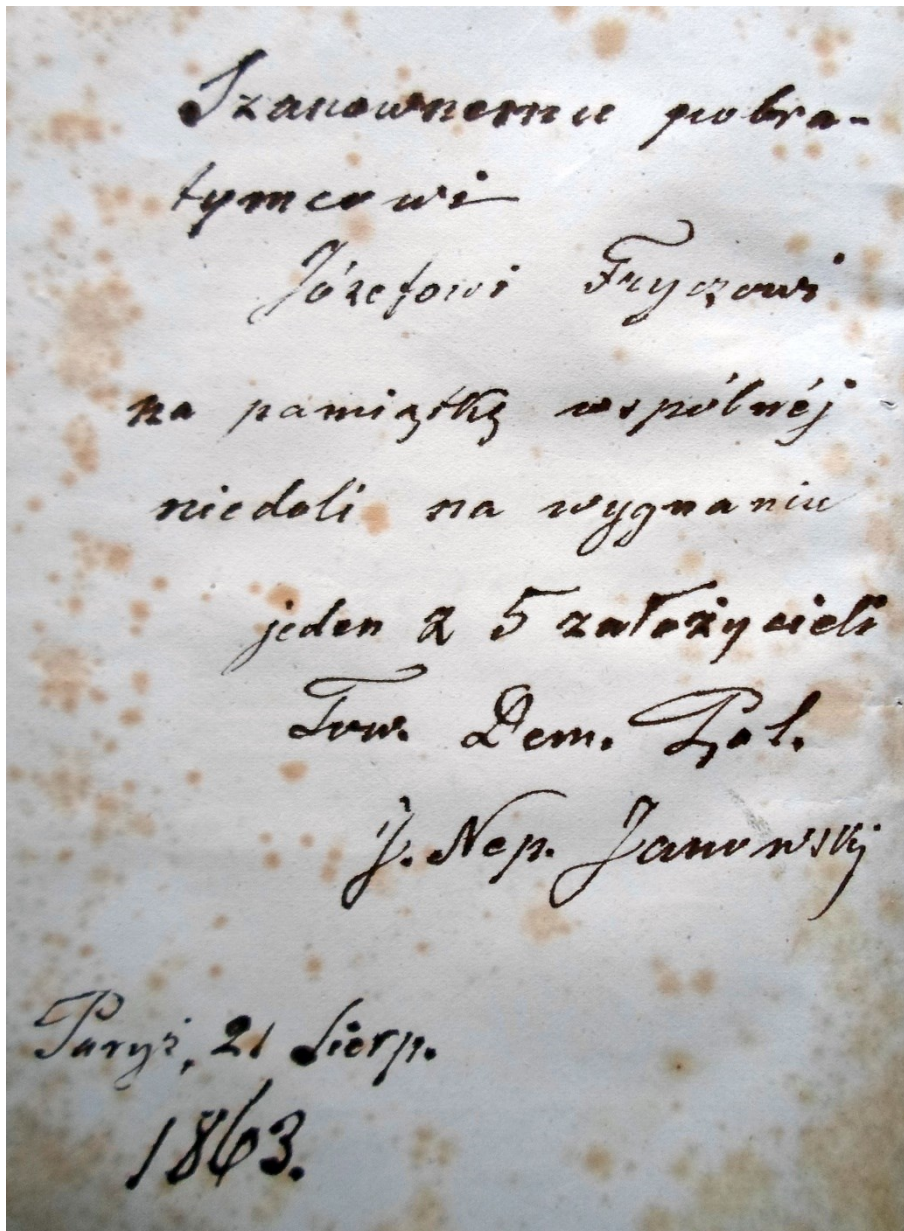 Szanownemu pobra-
tymcowi
Józefowi Fryczowi
na pamiątkę wspólnéj
niedoli na wygnaniu
jeden z 5 założycieli
Tow. Dem. Pol.
J. Nep. Janowski
Paryż, 21 Sierp.
1863.